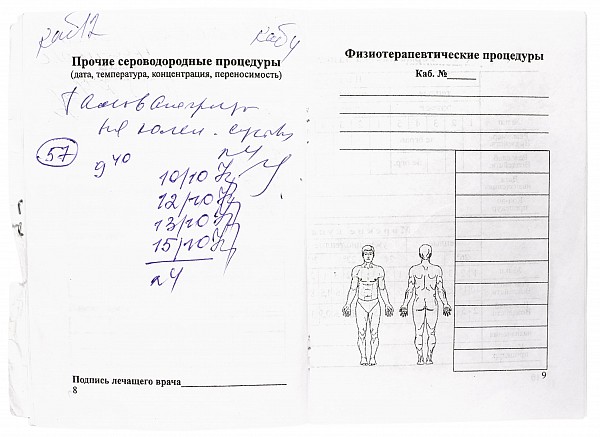 каб12
каб4
Прочие сероводородные процедуры
(дата, температура, концентрация, переносимость)
на колен. суставы
N4
57
9 40
10/10
12/10
13/10
15/10
N4
Подпись лечащего врача
8
Физиотерапевтические процедуры
Каб. №
9